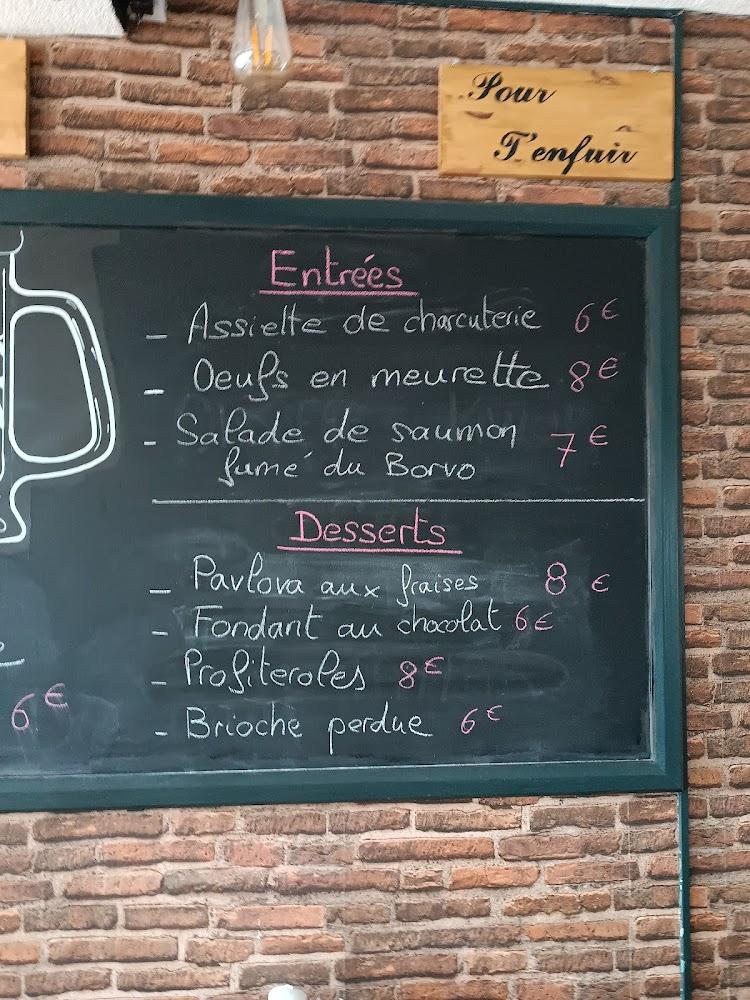 Pour
T'enfuir
Entrées
- Assiette de charcuterie 6€
- Oeufs en meurette 8€
- Salade de saumon 7€
fumé du Borvo
Desserts
- Pavlova aux fraises 8 €
- Fondant au chocolat 6€
- Profiteroles 8€
- Brioche perdue 6€
6€